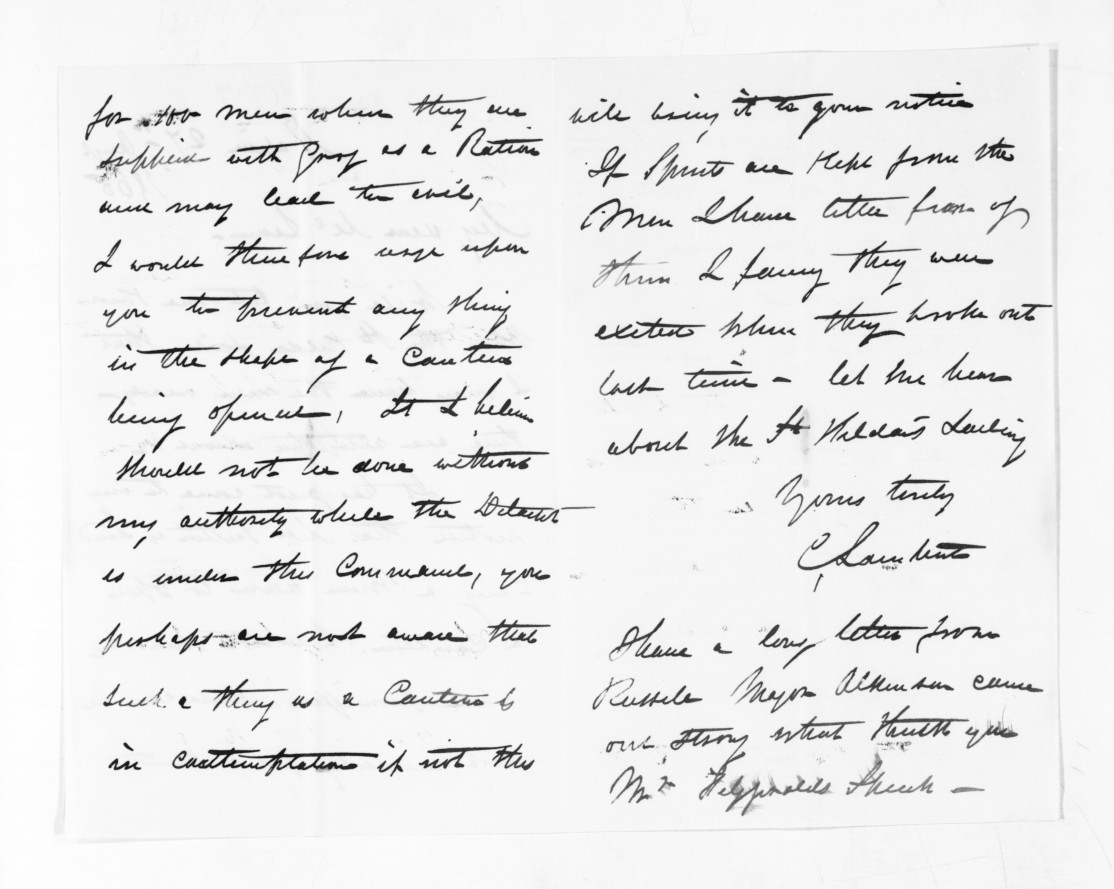 for 100 men when they are
supplied with Grog as a Ration
and may lead to evil,
I would therefore urge upon
you to prevent any thing
in the shape of a Canteen
being opened, It I believe
should not be done without
my authority while the Detacht
is under this Command, you
perhaps are not aware that
such a thing as a Canteen is
in contemplation if not this
will bring it to your notice
If Spirits are kept from the
Men I have little fear of
them I fancy they were
exited when they broke out
last time - let me hear
about the St Hilda's Sailing
Yours truly
C Lambert
I have a long letter from
Russell Major Atkinson came
out strong what think you
Mr Fitzgeralds Speech -